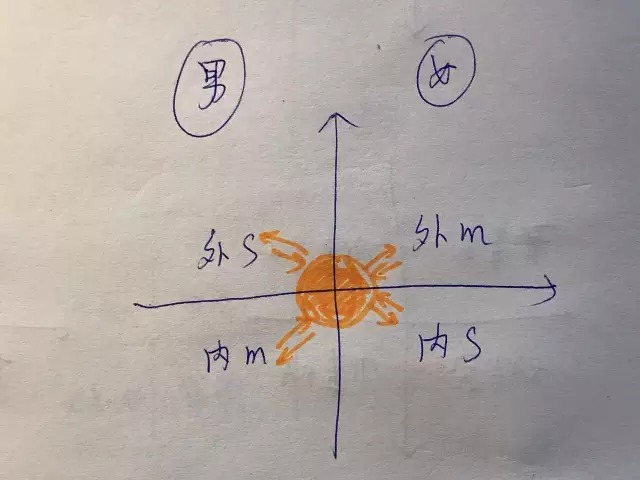 男 女
外 S 外 m
内 m 内 S